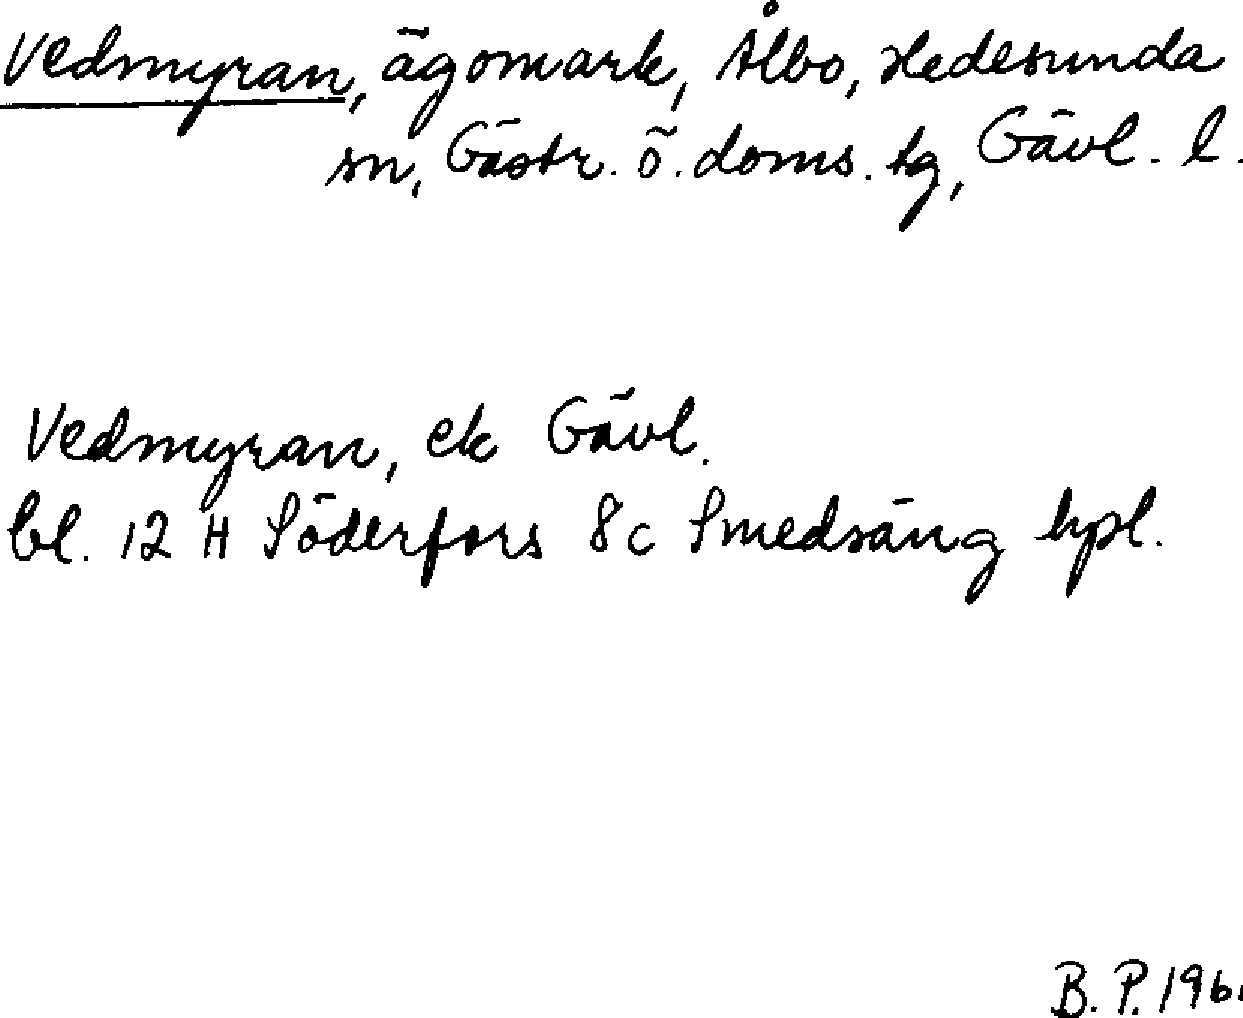 Vedmyran, ägomark, Ålbo, Hedesunda
sn, Gästr. ö. doms. tg, Gävl. l.
Vedmyran, ek Gävl.
bl. 12 H Söderfors 8c Smedsäng hpl.
B. P. 196